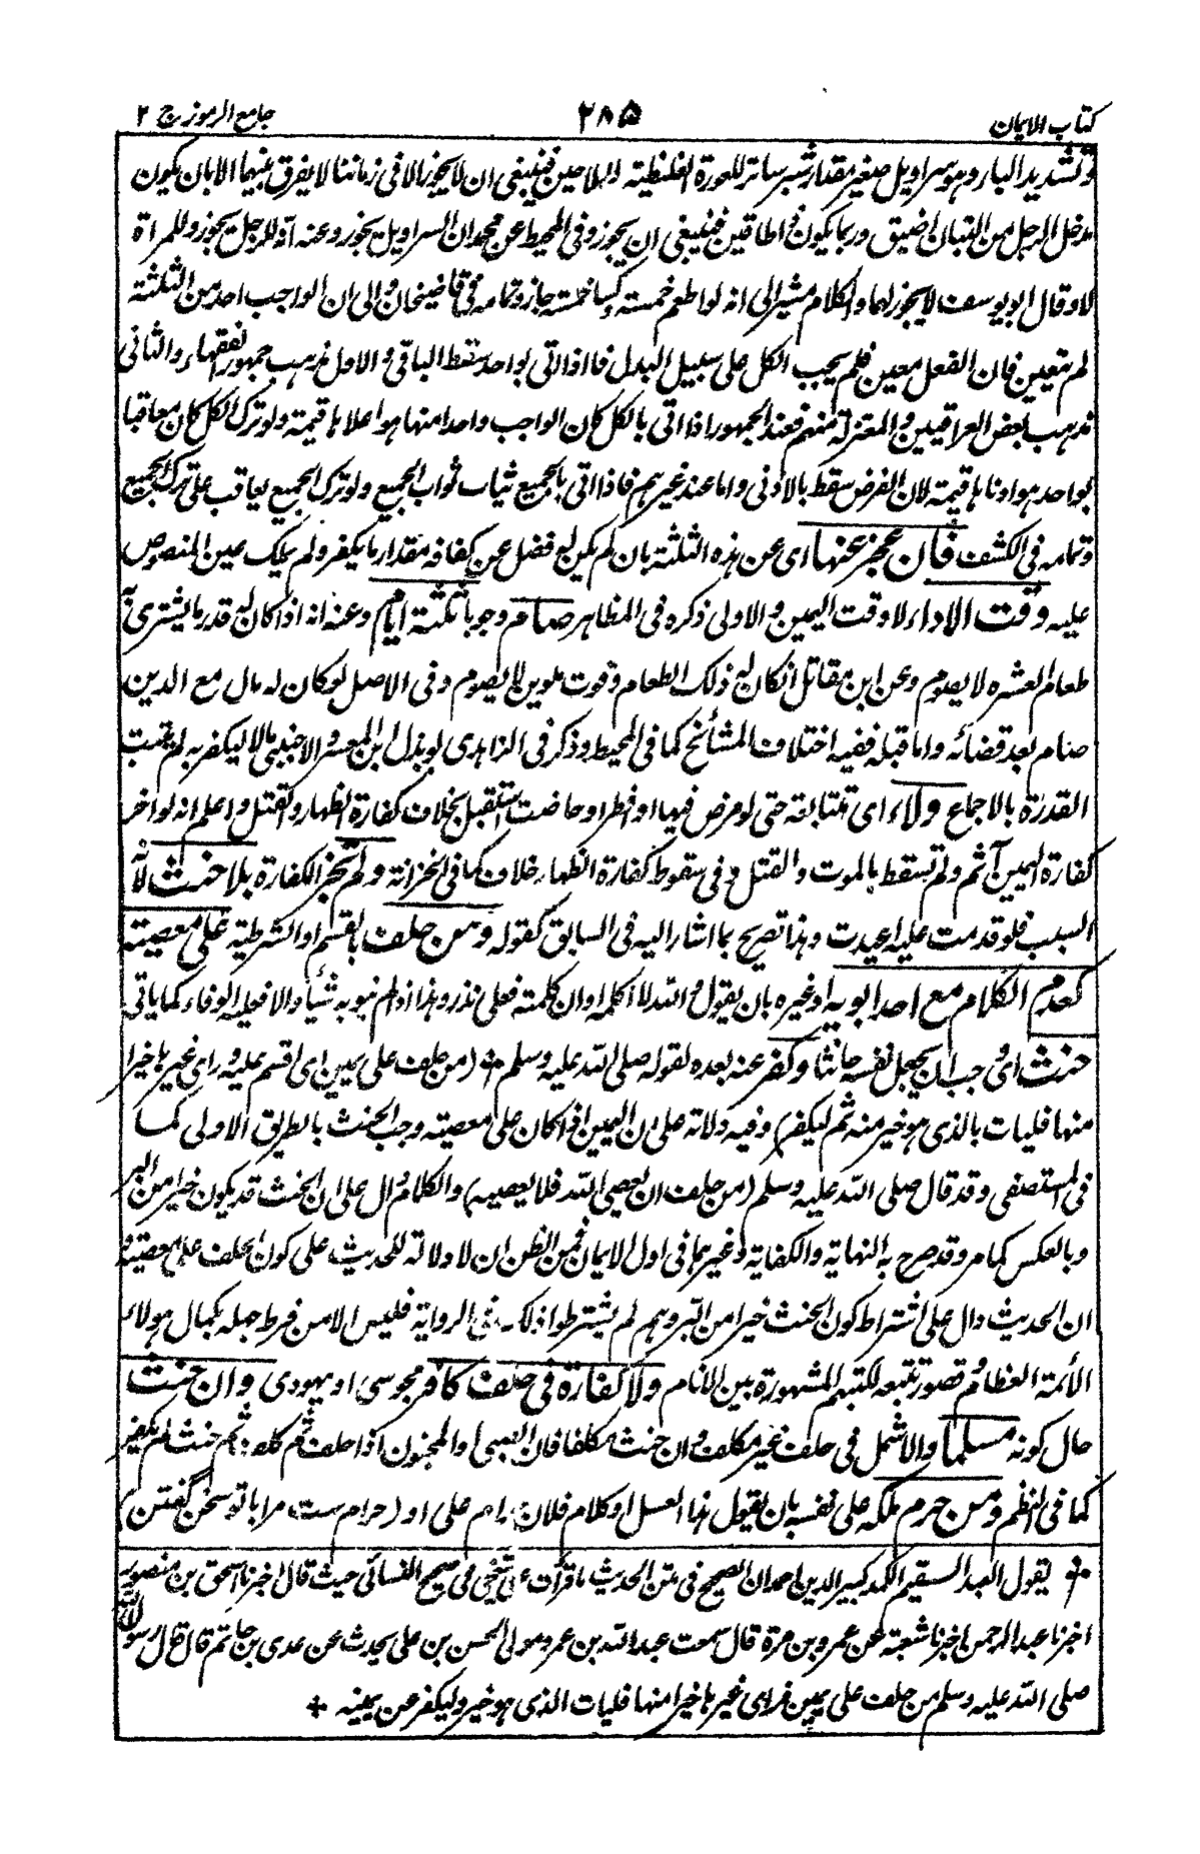 كتاب الايمان ٢٨٥ جامع الرموز ج ٢
وتشديد الباء وهو سراويل صغير مقدار شبر ساتر للعورة الغليظة للملاحين فينبغى ان لا يجوز الا فى زماننا لا يفرق بينهما الا بان يكون
مدخل الرجل من التبان اضيق وربما يكون ذا طاقين فينبغى ان يجوز وفى المحيط عن محمد ان السراويل يجوز وعنه انه للرجل يجوز وللمرأة
لا وقال ابو يوسف لا يجوز لهما والكلام مشير الى انه لو اطعم خمسة وكسا خمسة جاز وتمامه فى قاضيخان والى ان الواجب احد من الثلثة
لم يتعين فان الفعل معين فلم يجب الكل على سبيل البدل فاذا اتى بواحد سقط الباقى والاول مذهب جمهور الفقهاء والثانى
مذهب بعض العراقيين والمعتزلة منهم فعند الجمهور اذا اتى بالكل كان الواجب واحدا منها هو اعلاها قيمة ولو ترك الكل كان معاقبا
بواحد هو ادناها قيمة لان الفرض سقط بالادنى واما عند غيرهم فاذا اتى بالجميع يثاب ثواب الجميع ولو ترك الجميع يعاقب على ترك الجميع
وتمامه فى الكشف فان عجز عنها اى عن هذه الثلثة بان لم يكن له فضل عن كفافه مقدار ما يكفر ولم يملك عين المنصوص
عليه وقت الاداء لا وقت اليمين والاولى ذكره فى المظاهر صام وجوبا ثلثة ايام وعنه انه اذا كان له قدر ما يشترى به
طعام العشرة لا يصوم وعن ابن مقاتل ان كان له ذلك الطعام وقوت يومين لا يصوم وفى الاصل لو كان له مال مع الدين
صام بعد قضائه واما قبله ففيه اختلاف المشائخ كما فى المحيط وذكر فى الزاهدى لو بذل ابن المعسر والاجنبى مالا ليكفر به لم يثبت
القدرة بالاجماع ولاء اى متتابعة حتى لو مرض فيها او افطر او حاضت استقبل بخلاف كفارة الظهار والقتل واعلم انه لو اخر
كفارة اليمين أثم ولم تسقط بالموت والقتل وفى سقوط كفارة الظهار خلاف كما فى الخزانة ولم يجز الكفارة بلا حنث لانه
السبب فلو قدمت عليه اعيدت وهذا تصريح بما اشار اليه فى السابق كقوله ومن حلف بالقسم او الشرطية على معصية
كعدم الكلام مع احد ابويه او غيره بان يقول والله لا اكلمه او ان كلمته فعلى نذر وهذا اذا لم ينو به شيأ والا فعليه الوفاء كما ياتى
حنث اى وجب ان يجعل نفسه حانثا وكفر عنه بعده لقوله صلى الله عليه وسلم + (من حلف على يمين اى اقسم عليه وراى غيرها خيرا
منها فليات بالذى هو خير منه ثم ليكفر) وفيه دلالة على ان اليمين اذا كان على معصية وجب الحنث بالطريق الاولى كما
فى المستصفى وقد قال صلى الله عليه وسلم (من حلف ان يعصى الله فلا يعصيه) والكلام دال على ان الحنث قد يكون خيرا من البر
وبالعكس كما مر وقد صرح به النهاية والكفاية وغيرهما فى اول الايمان فمن الظن ان لا دلالة للحديث على كون الحلف على معصية و
ان الحديث دال على اشتراط كون الحنث خيرا من البر وهم لم يشترطوا ذلك فى الرواية فليس الا من فرط جهله بكمال هولاء
الأئمة العظام وقصور تتبعه لكتبهم المشهورة بين الانام ولا كفارة فى حلف كافر مجوسى او يهودى وان حنث
حال كونه مسلما والاشمل فى حلف غير مكلف وان حنث مكلفا فان الصبى والمجنون اذا حلف ثم كلف ثم حنث لم يكفر
كما فى النظم ومن حرم ملكه على نفسه بان يقول هذا العسل او كلام فلان حرام على او (حرام ست مرا با تو سخن گفتن)
+ يقول العبد السقيم الكمد كبير الدين احمد ان الصحيح فى متن الحديث ما قرأت على شيخى فى صحيح النسائى حيث قال اخبرنا اسحق بن منصور
اخبرنا عبد الرحمن اخبرنا شعبة عن عمرو بن مرة قال سمعت عبد الله بن عمرو مولى الحسن بن على يحدث عن عدى بن حاتم قال قال رسول الله
صلى الله عليه وسلم من حلف على يمين فراى غيرها خيرا منها فليات الذى هو خير وليكفر عن يمينه +